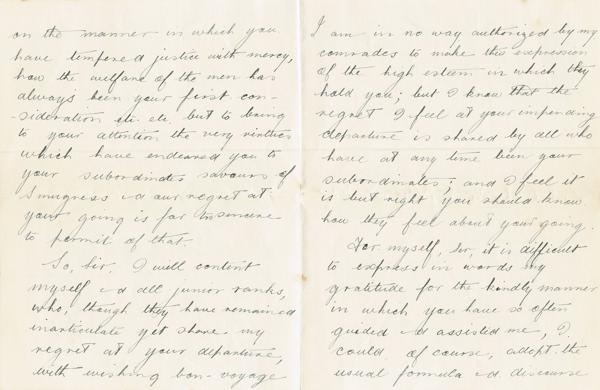 on the manner in which you
have tempered justice with mercy,
how the welfare of the men has
always been your first con-
-sideration etc. etc. but to bring
to your attention the very virtues
which have endeared you to
your subordinates savours of
Smugness &d our regret at
your going is far to sincere
to permit of that.
So, Sir, I will content
myself &d all junior ranks,
who, though they have remained
inarticulate yet share my
regret at your departure,
with wishing bon-voyage
I am in no way authorized by my
comrades to make this expression
of the high esteem in which they
hold you; but I know that the
regret I feel at your impending
departure is shared by all who
have at any time been your
subordinates; and I feel it
is but right you should know
how they feel about your going.
For myself, Sir, it is difficult
to express in words my
gratitude for the kindly manner
in which you have so often
guided &d assisted me, I
could, of course, adopt the
usual formula &d discourse